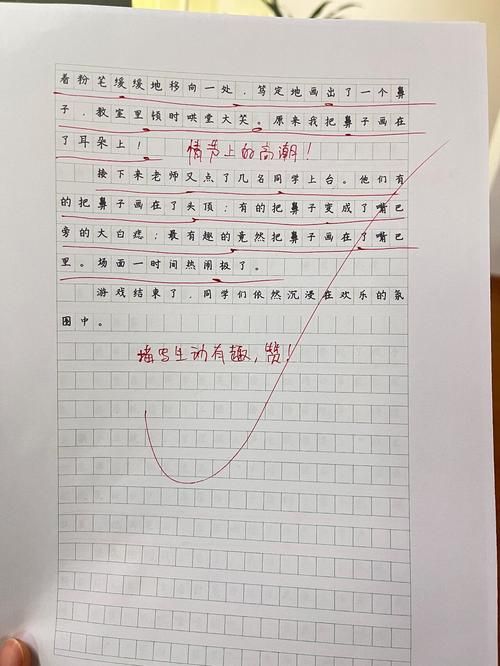 着粉笔缓缓地移向一处，笃定地画出了一个鼻
子，教室里顿时哄堂大笑。原来我把鼻子画在
了耳朵上！
情节上的高潮！
接下来老师又点了几名同学上台。他们有
的把鼻子画在了头顶；有的把鼻子变成了嘴巴
旁的大白痣；最有趣的竟然把鼻子画在了嘴巴
里。场面一时间热闹极了。
游戏结束了，同学们依然沉浸在欢乐的氛
围中。
描写生动有趣，赞！